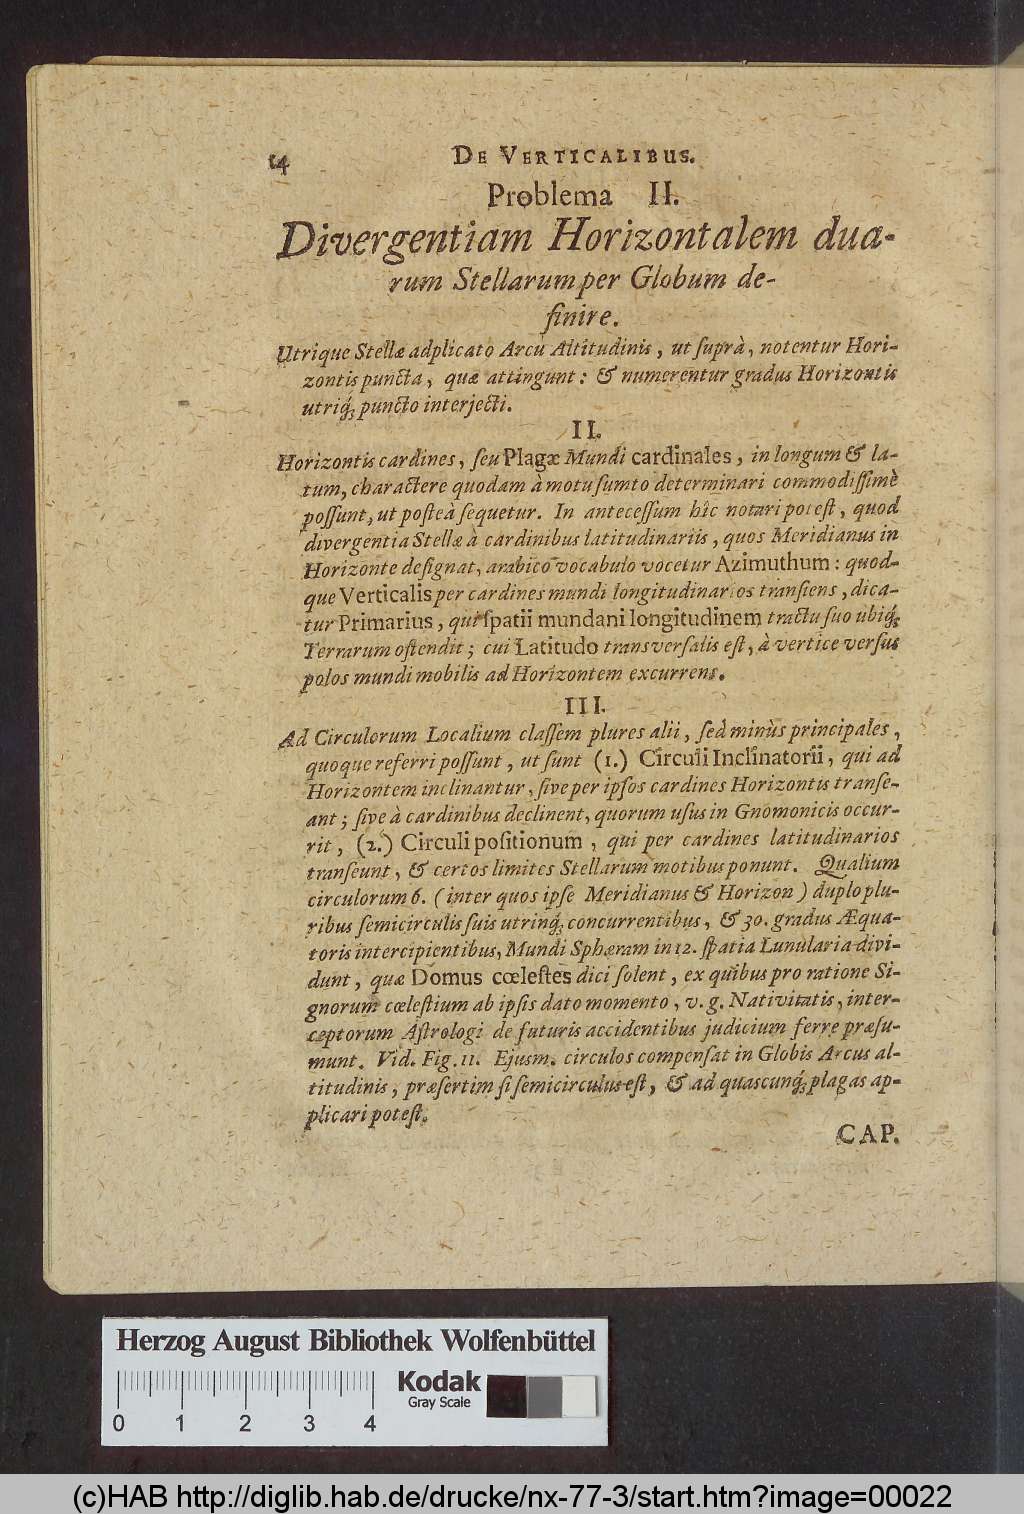 14 DE VERTICALIBUS.
Problema II.
Divergentiam Horizontalem dua-
rum Stellarum per Globum de-
finire.
Utrique Stellæ adplicato Arcu Altitudinis, ut ſuprà, notentur Hori-
zontis puncta, quæ attingunt: & numerentur gradus Horizontis
utriq́; puncto interjecti.
II.
Horizontis cardines, ſeu Plagæ Mundi cardinales, in longum & la-
tum, charactere quodam à motu ſumto determinari commodiſſimè
poſſunt, ut poſteà ſequetur. In anteceſſum hîc notari poteſt, quod
divergentia Stellæ à cardinibus latitudinariis, quos Meridianus in
Horizonte deſignat, arabico vocabulo vocetur Azimuthum: quod-
que Verticalis per cardines mundi longitudinarios tranſiens, dica-
tur Primarius, qui ſpatii mundani longitudinem tractu ſuo ubiq́;
Terrarum oſtendit; cui Latitudo transverſalis eſt, à vertice verſus
polos mundi mobilis ad Horizontem excurrens.
III.
Ad Circulorum Localium claſſem plures alii, ſed minùs principales,
quoque referri poſſunt, ut ſunt (1.) Circuli Inclinatorii, qui ad
Horizontem inclinantur, ſive per ipſos cardines Horizontis tranſe-
ant; ſive à cardinibus declinent, quorum uſus in Gnomonicis occur-
rit, (2.) Circuli poſitionum, qui per cardines latitudinarios
tranſeunt, & certos limites Stellarum motibus ponunt. Qualium
circulorum 6. (inter quos ipſe Meridianus & Horizon) duplo plu-
ribus ſemicirculis ſuis utrinq́; concurrentibus, & 30. gradus Æqua-
toris intercipientibus, Mundi Sphæram in 12. ſpatia Lunularia divi-
dunt, quæ Domus cœleſtes dici ſolent, ex quibus pro ratione Si-
gnorum cœleſtium ab ipſis dato momento, v. g. Nativitatis, inter-
ceptorum Aſtrologi de futuris accidentibus judicium ferre præſu-
munt. Vid. Fig. 11. Ejusm. circulos compenſat in Globis Arcus al-
titudinis, præſertim ſi ſemicirculus eſt, & ad quascunq́; plagas ap-
plicari poteſt.
CAP.
Herzog August Bibliothek Wolfenbüttel
Kodak
Gray Scale
0 1 2 3 4
(c)HAB http://diglib.hab.de/drucke/nx-77-3/start.htm?image=00022